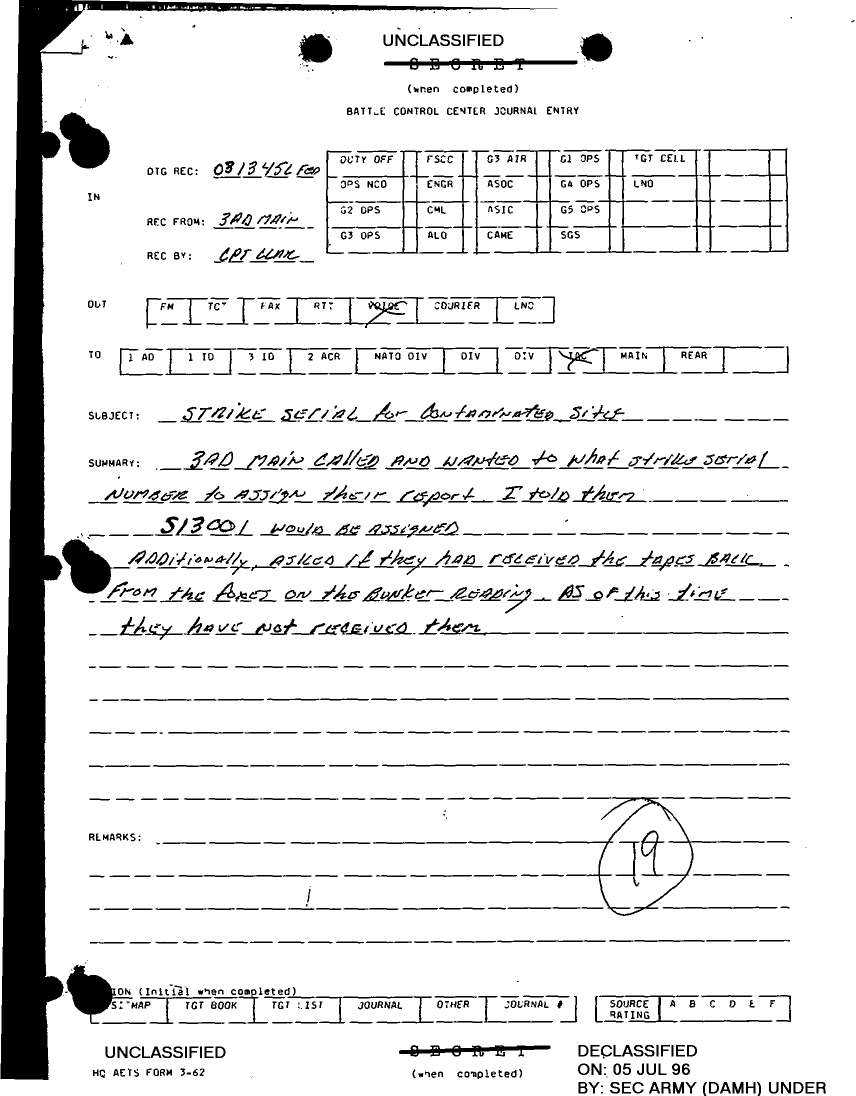 UNCLASSIFIED
SECRET
(when completed)
BATTLE CONTROL CENTER JOURNAL ENTRY
IN
DTG REC: 081345L Feb
REC FROM: 3AD MAIN
REC BY: CPT
DUTY OFF FSCC G3 AIR G1 OPS TGT CELL
OPS NCO ENGR ASOC G4 OPS LNO
G2 OPS CML ASIC G5 OPS
G3 OPS ALO CAME SGS
OUT FM TCT FAX RTT VOICE COURIER LNO
TO 1 AD 1 ID 3 ID 2 ACR NATO DIV DIV DIV TAC MAIN REAR
SUBJECT: STRIKE SERIAL for Contaminated Site
SUMMARY: 3AD MAIN CAllED AND WANTED to what strike serial
NUMBER to ASSIGN their report. I told them
S13001 would BE ASSIGNED
ADDitionally, ASKED If they HAD received the tapes BACK
From the foxes on the Bunker READing. AS of this time
they have not received them
REMARKS:
19
ION (Initial when completed)
SITMAP TGT BOOK TGT LIST JOURNAL OTHER JOURNAL # SOURCE RATING A B C D E F
UNCLASSIFIED
SECRET
DECLASSIFIED
HQ AETS FORM 3-62
(when completed)
ON: 05 JUL 96
BY: SEC ARMY (DAMH) UNDER